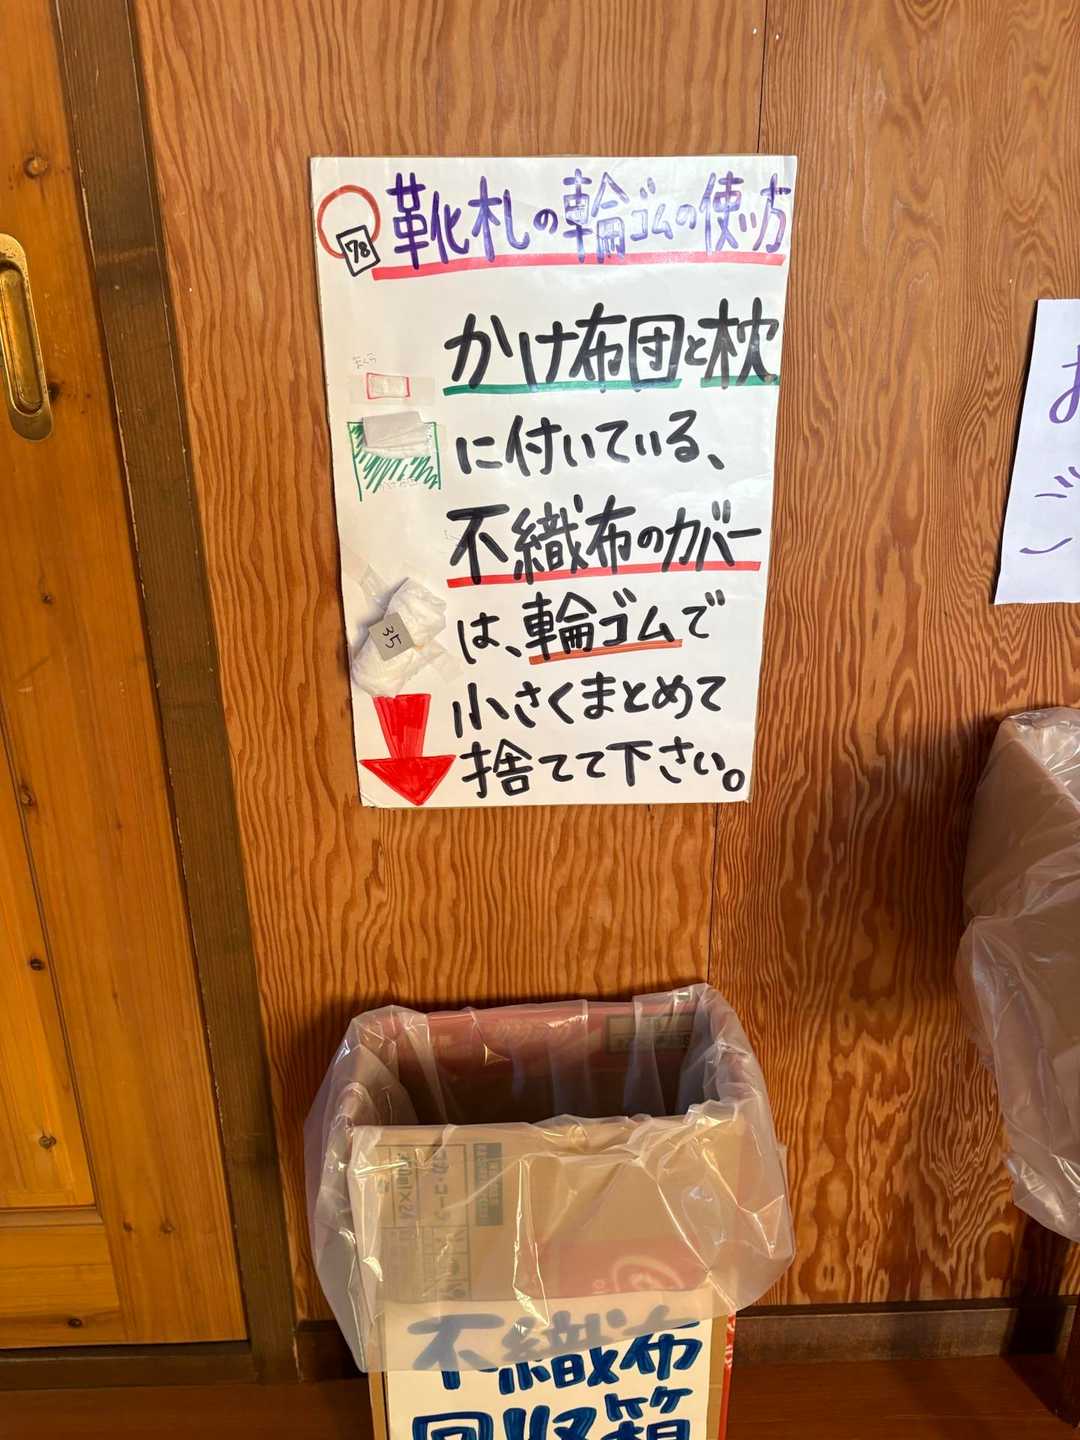 78
靴札の輪ゴムの使い方
まくら
かけ布団と枕
に付いている、
不織布のカバー
は、輪ゴムで
35
小さくまとめて
捨てて下さい。
不織布
回収箱